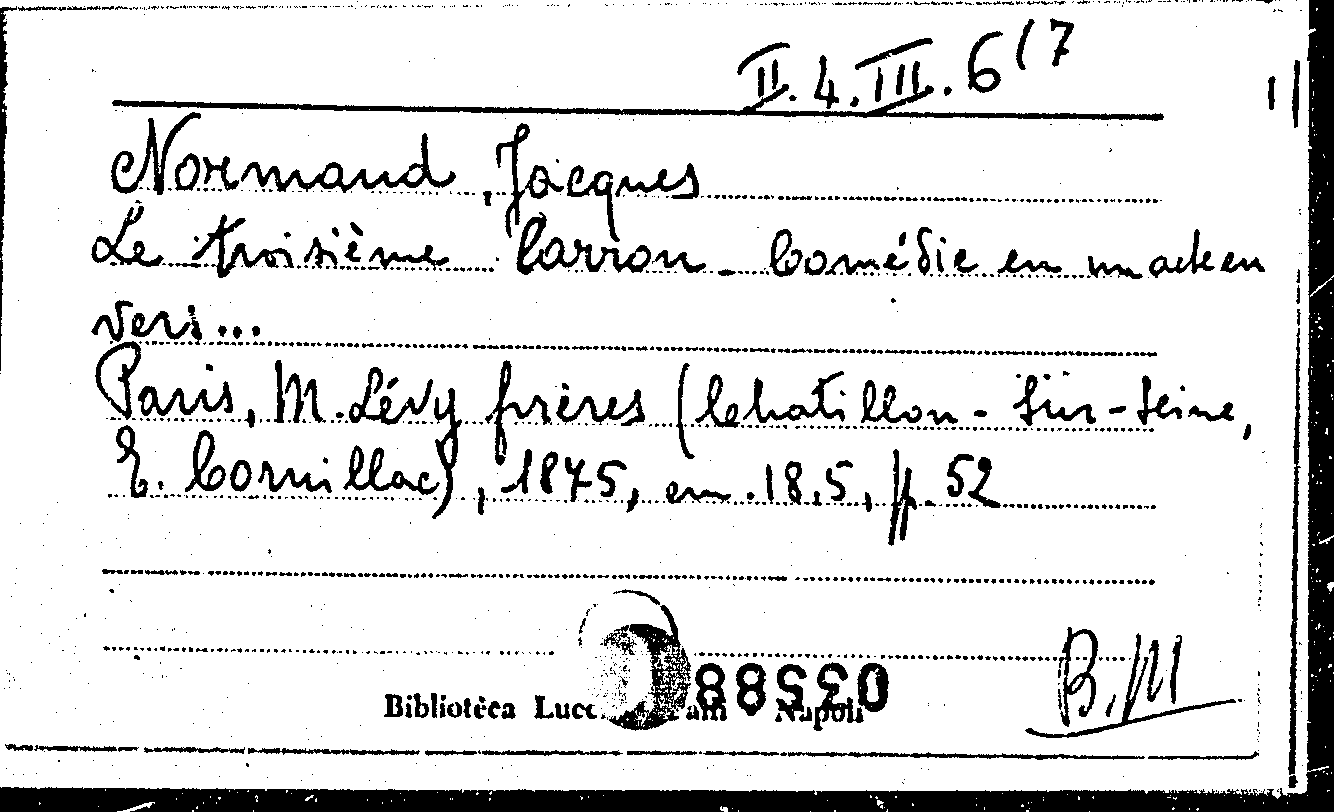 II.4.III.6(7
Normand, Jacques
Le troisième larron - Comédie en un acte en
vers...
Paris, M. Lévy frères (Chatillon-sur-Seine,
E. Cornillac), 1875, cm. 18,5, p. 52
B.M
Biblioteca Napoli